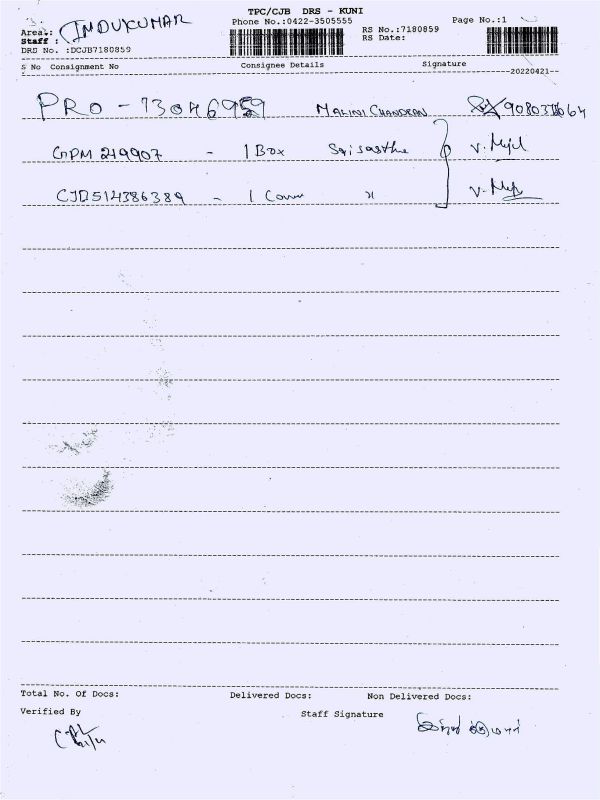 TPC/CJB DRS - KUNI
INDUKUMAR
Phone No.:0422-3505555
Page No.:1
Area.:
Staff :
RS No.:7180859
RS Date:
DRS No. :DCJB7180859
S No Consignment No Consignee Details Signature
20220421
PRO - 73046959 MALINI CHANDRAN
GPM 219907 - 1 Box Sri sastha
CJB514386389 - 1 Cover "
Total No. Of Docs: Delivered Docs: Non Delivered Docs:
Verified By Staff Signature